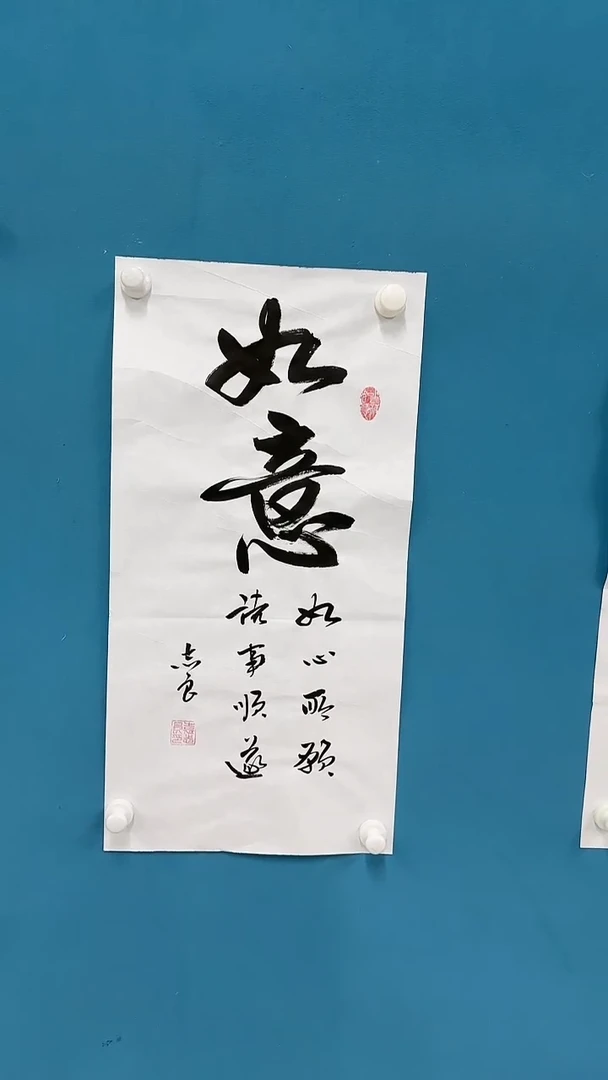 如意
如心所願
诸事順遂
志良